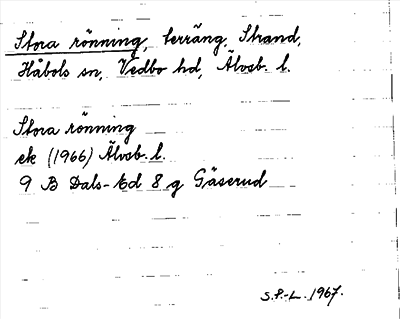 Stora rönning, terräng, Strand,
Håbols sn, Vedbo hd, Älvsb. l.
Stora rönning
ek (1966) Älvsb. l.
9 B Dals-Ed 8 g Gäserud
S.F.-L. 1967.